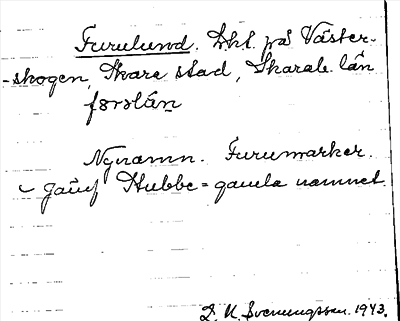 Furulund. Lht. på Väster-
-skogen, Skara stad, Skarab. län
Nynamn. Furumarker.
Jämf Stubbe = gamla namnet.
D. N. Svenungsson. 1943.